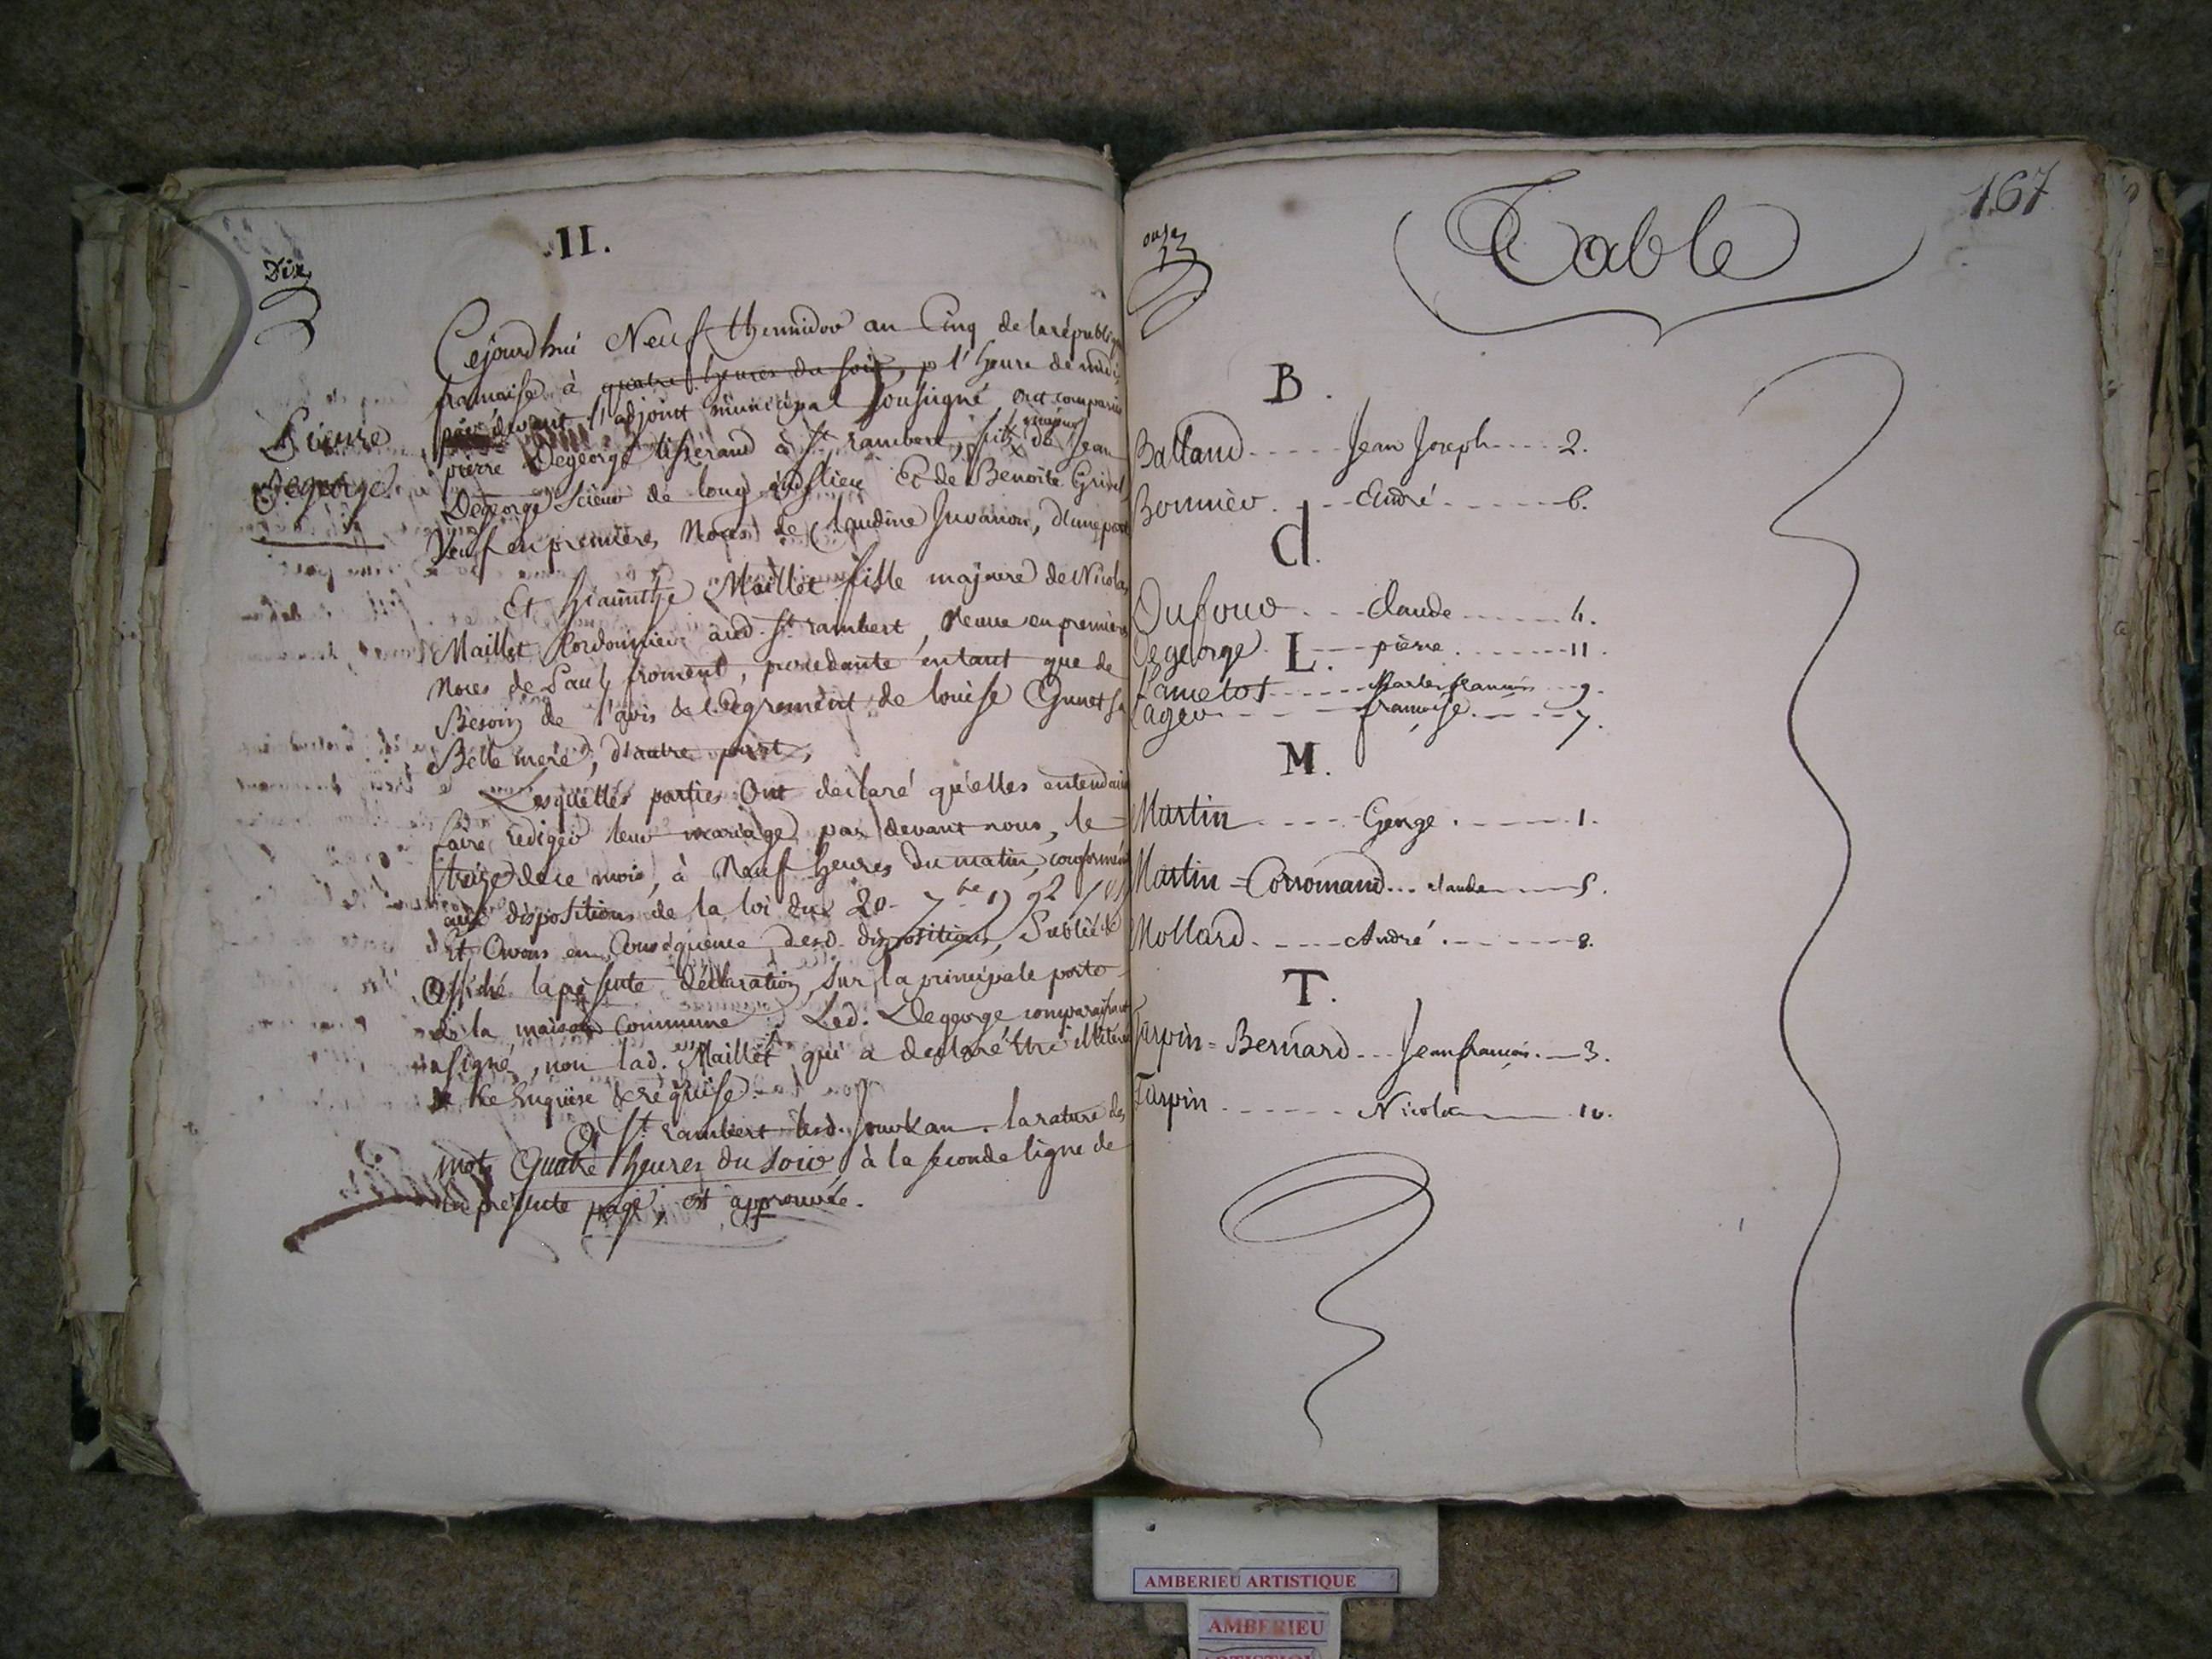 Dix
II.
Pierre
Degeorge
Cejourd'hui Neuf thermidor an Cinq de la république
francaise à quatre heures du soir, l'heure de midi
par devant l'adjoint municipal soussigné est comparu
pierre Degeorge tisserand à St rambert, fils majeur de Jean
Degeorge scieur de long aud. lieu Et de Benoite
Veuf en premières Noces de Claudine Juvanon, d'une part
Et hiacinthe Maillet fille majeure de Nicolas
Maillet Cordonnier aud. St rambert, Veuve en premières
Noces de Paul froment, procedante entant que de
Besoin de l'avis & de l'agrement de louise Gunet sa
Belle mere, d'autre part,
Lesquelles parties Ont declaré qu'elles entendaient
faire rediger leur mariage par devant nous, le
treize de ce mois, à Neuf heures du matin, conformément
aux dispositions de la loi du 20 7bre 1792
Et Avons en Conséquence desd. dispositions, Publié &
Affiché la présente déclaration, sur la principale porte
de la maison Commune Led. Degeorge comparaissant
a signé, non lad. Maillet qui a déclaré être illitérée
de ce Enquise & requise.
A St rambert lesd. jour & an. la rature des
mots Quatre heures du soir à la seconde ligne de
la présente page, est approuvée.
onze
167
Table
B.
Balland Jean Joseph 2.
Bonnier André 6.
d.
Dufour Claude 4.
Degeorge pierre 11.
L.
Lametot Charles francois 9.
Lager francoise 7.
M.
Martin George 1.
Martin = Corromand claude 5.
Mollard André 8.
T.
Tarpin = Bernard Jean francois 3.
Tarpin Nicolas 10.
AMBERIEU ARTISTIQUE
AMBERIEU
ARTISTIQUE